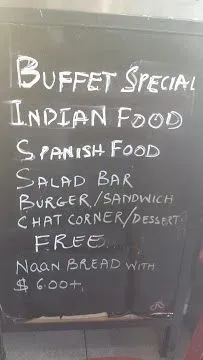 BUFFET SPECIAL
INDIAN FOOD
SPANISH FOOD
SALAD BAR
BURGER/SANDWICH
CHAT CORNER/DESSERT
FREE
NAAN BREAD WITH
$ 6.00+